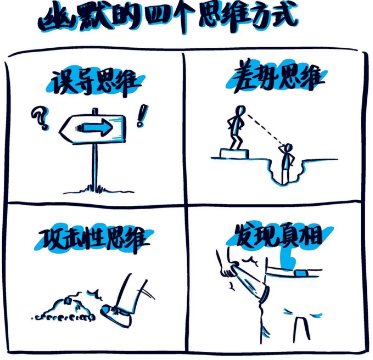 幽默的四个思维方式
误导思维
差势思维
?
!
攻击性思维
发现真相